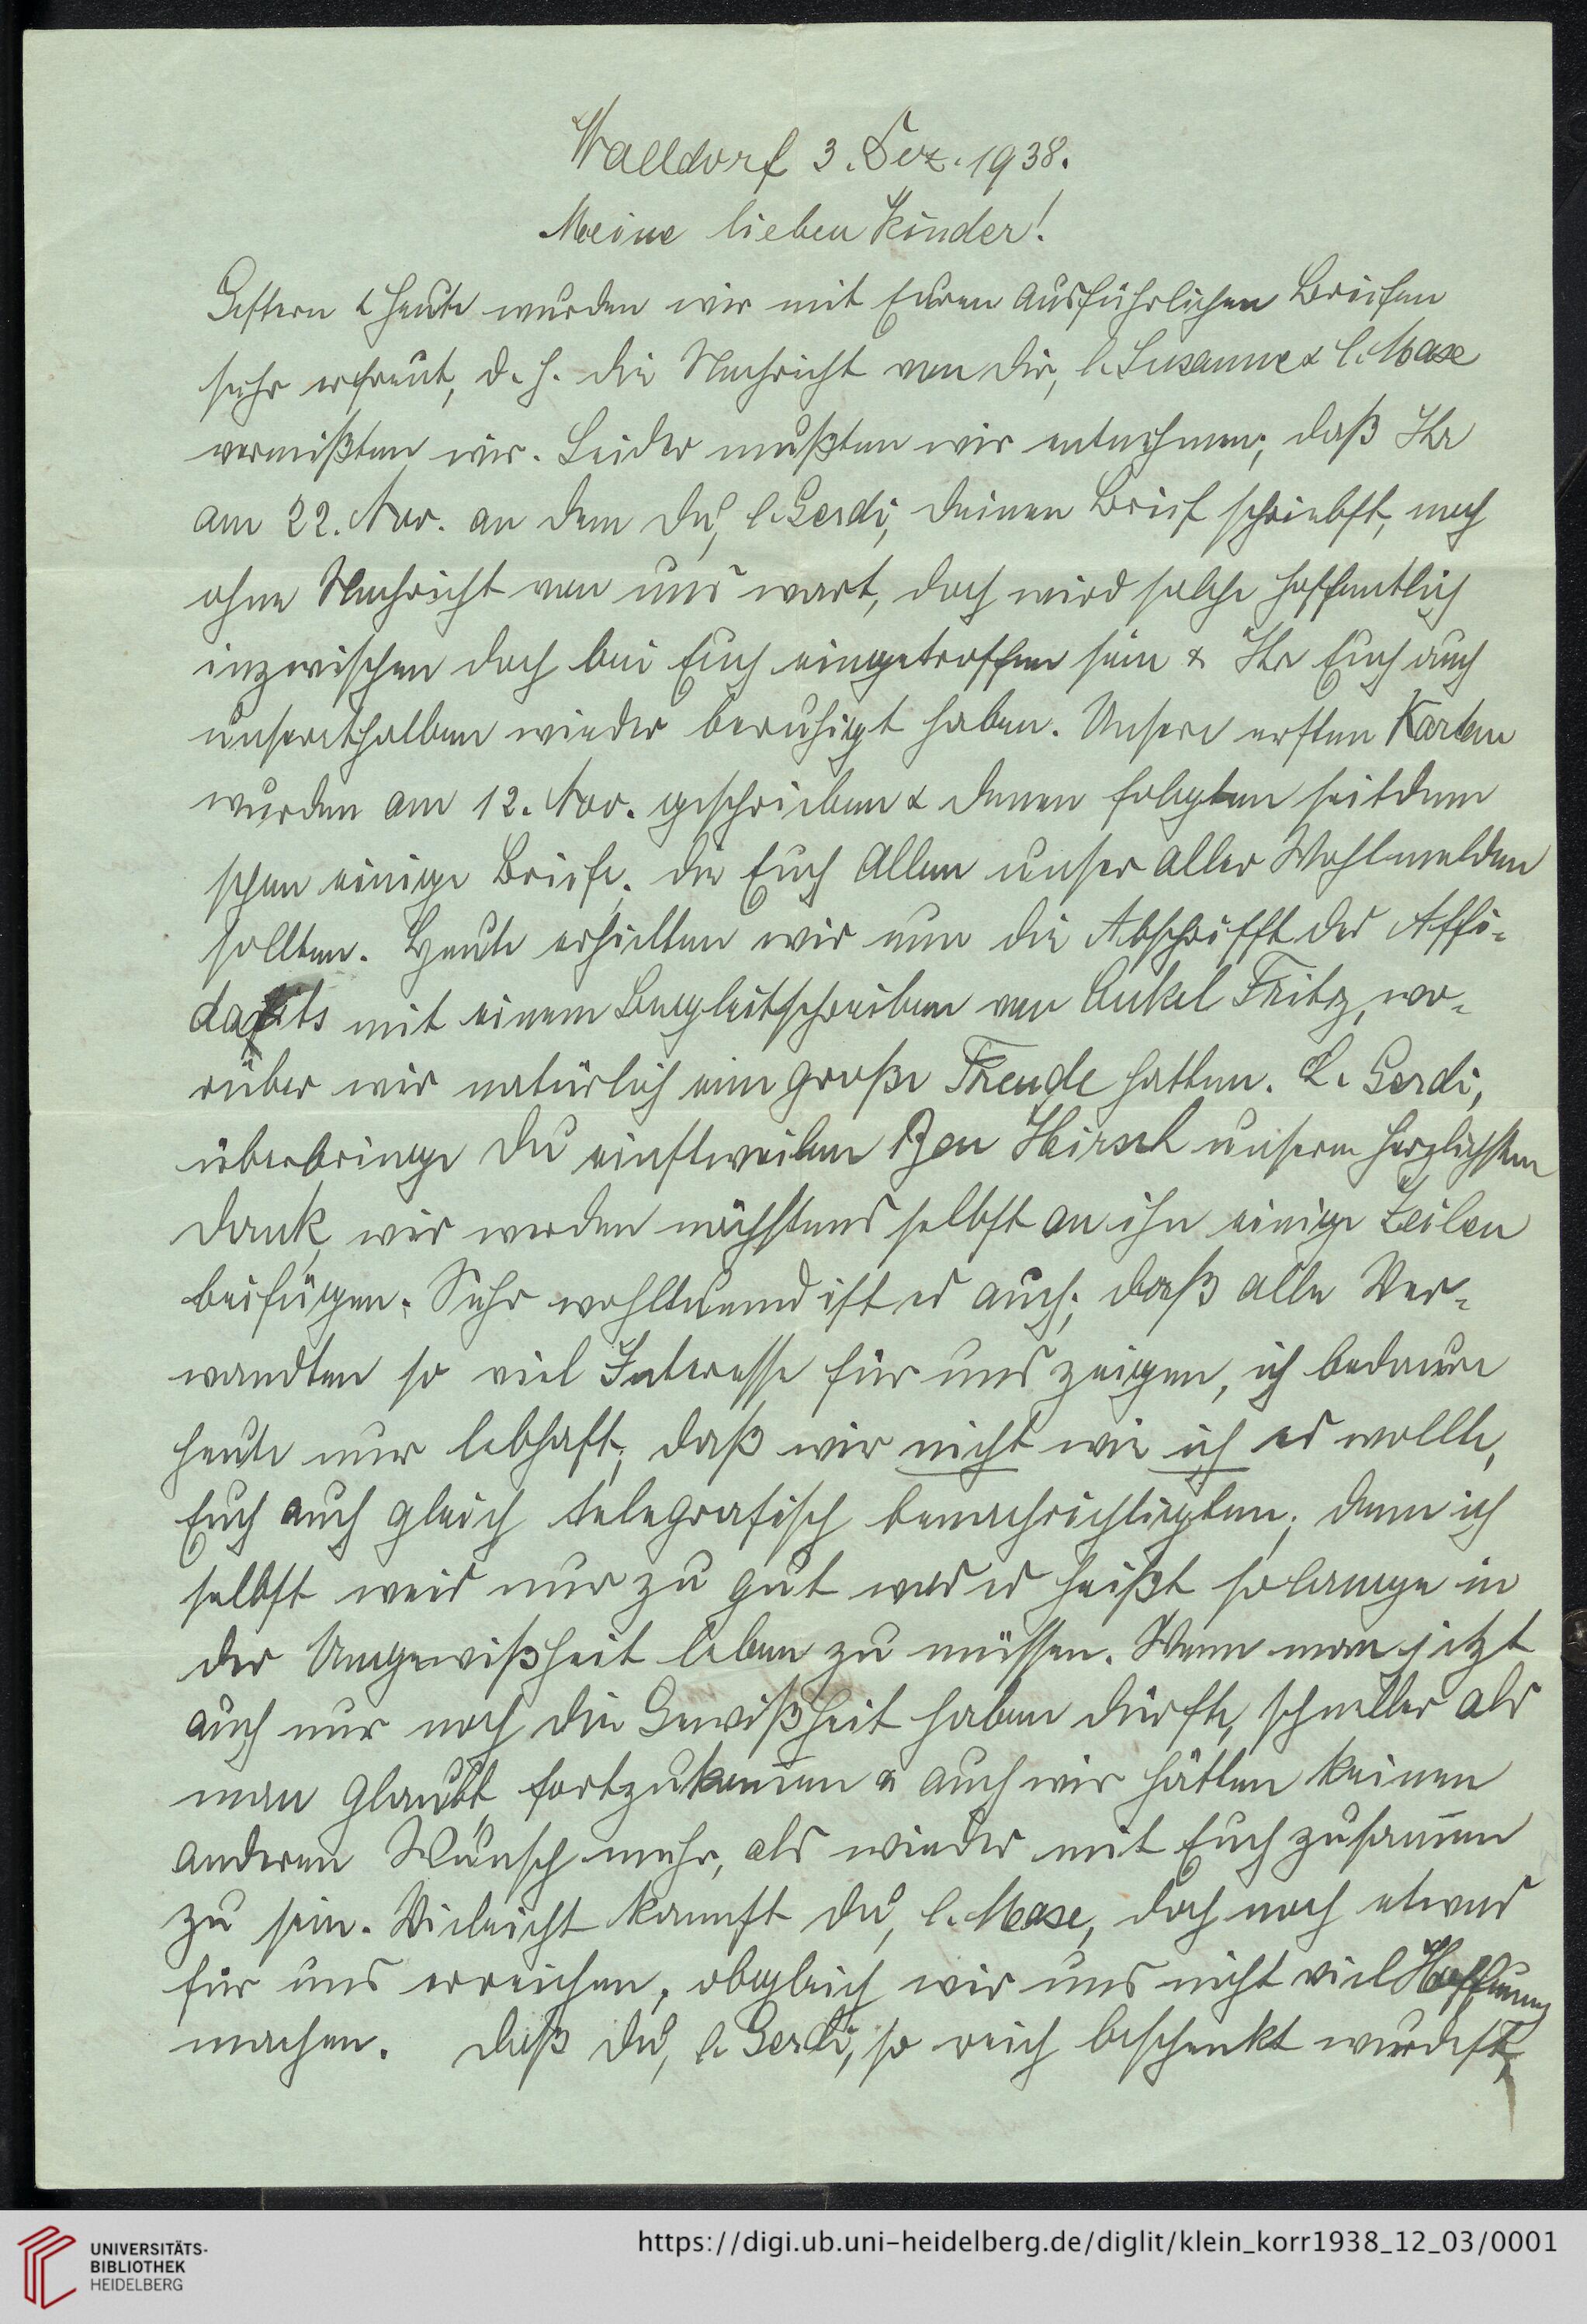 Walldorf 3. Dez. 1938.
Meine lieben Kinder!
Gestern & heute wurden wir mit Euren ausführlichen Briefen
sehr erfreut, d. h. die Nachricht von Dir, l. Susanne & l. Maxe
vermißten wir. Leider mußten wir entnehmen, daß Ihr
am 22. Nov. an dem Du, l. Gerdi, Deinen Brief schriebst, noch
ohne Nachricht von uns wart, doch wird solche hoffentlich
inzwischen doch bei Euch eingetroffen sein & Ihr Euch auch
unserethalben wieder beruhigt haben. Unsere ersten Karten
wurden am 12. Nov. geschrieben & denen folgten seitdem
schon einige Briefe, die Euch Allen unser aller Wohl melden
sollten. Heute erhielten wir nun die Abschrifft des Affi-
davits mit einem Begleitschreiben von Onkel Fritz, wo-
rüber wir natürlich eine große Freude hatten. L. Gerdi,
überbringe Du einstweilen Ben Hirsch unsern herzlichsten
Dank, wir werden nächstens selbst an ihn einige Zeilen
beifügen. Sehr wohltuend ist es auch, daß alle Ver-
wandten so viel Interesse für uns zeigen, ich bedaure
heute nur lebhaft, daß wir nicht wie ich es wollte,
Euch auch gleich telegrafisch benachrichtigten, denn ich
selbst weis nur zu gut was es heißt solange in
der Ungewißheit leben zu müssen. Wenn man jetzt
auch nur noch die Gewißheit haben dürfte, schneller als
man glaubt fortzukom̅en & auch wir hätten keinen
anderen Wunsch mehr, als wieder mit Euch zusam̅en
zu sein. Vieleicht kannst Du, l. Maxe, doch noch etwas
für uns erreichen, obgleich wir uns nicht viel Hoffnung
machen. Daß Du, l. Gerdi, so reich beschenkt wurdest,
UNIVERSITÄTS-
BIBLIOTHEK
HEIDELBERG
https://digi.ub.uni-heidelberg.de/diglit/klein_korr1938_12_03/0001